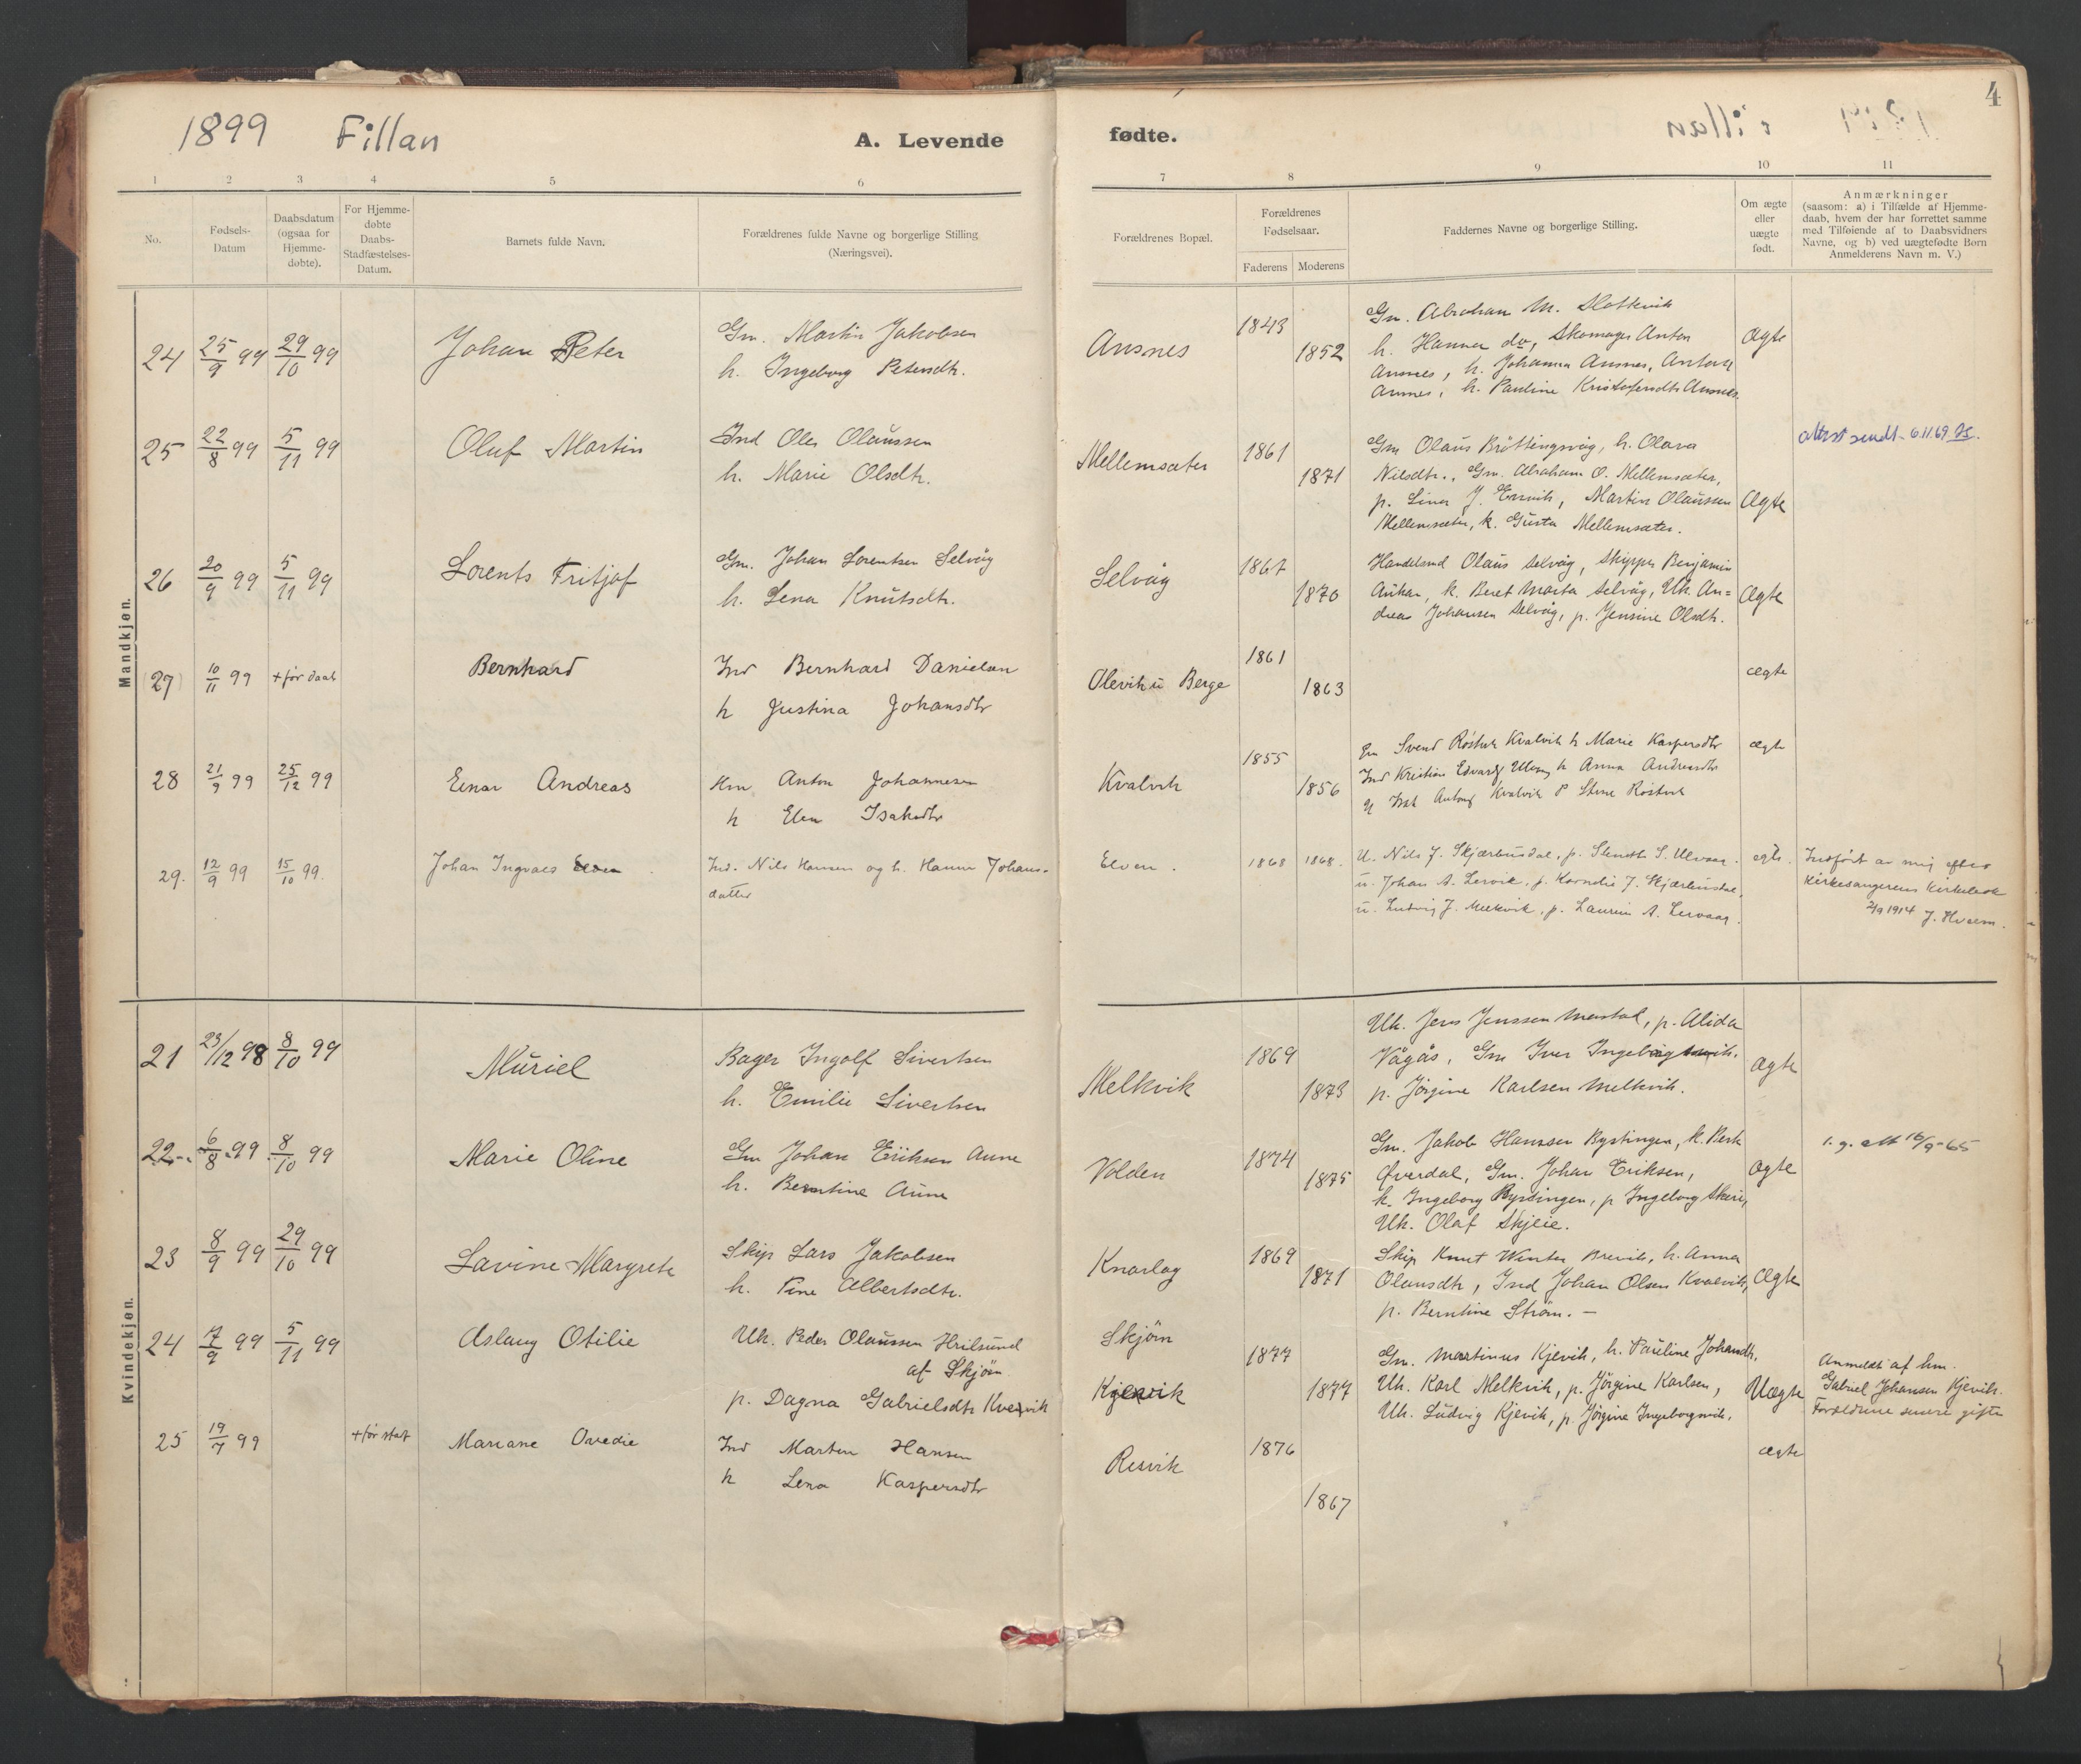 1899 Fillan
A. Levende
fødte.
4
1 2 3 4 5 6
7 8 9 10 11
No.
Fødsels-
Datum
Daabsdatum
(ogsaa for
Hjemme-
døbte).
For Hjemme-
døbte
Daabs-
Stadfæstelses-
Datum.
Barnets fulde Navn.
Forældrenes fulde Navne og borgerlige Stilling
(Næringsvei).
Forældrenes Bopæl.
Forældrenes
Fødselsaar.
Faderens Moderens
Faddernes Navne og borgerlige Stilling.
Om ægte
eller
uægte
født.
Anmærkninger
(saasom: a) i Tilfælde af Hjemme-
daab, hvem der har forrettet samme
med Tilføiende af to Daabsvidners
Navne, og b) ved uægtefødte Børn
Anmelderens Navn m. V.)
Mandkjøn.
24 25/9 99 29/10 99 Johan Peter
Gm. Martin Jakobsen
h. Ingeborg Petersdtr.
Ansnes 1843 1852
Gm. Abraham M. Slotkvik
h. Hanna do, Skomager Anton
Ansnes, h. Johanna Ansnes, Anton
Ansnes, h. Pauline Kristofersdtr Ansnes.
Ægte
25 22/8 99 5/11 99 Oluf Martin
Ind Oles Olaussen
h. Marie Olsdtr.
Mellemsæter 1861 1871
Gm Olaus Bröttingsvåg, h. Olava
Nilsdtr., Gm. Abraham O. Mellemsæter,
p. Lina J. Ervik, Martin Olaussen
Mellemsæter, k. Gusta Mellemsæter.
Ægte
attest sendt - 6.11.69
26 20/9 99 5/11 99 Lorents Fritjof
Gm. Johan Lorentsen Selvåg
h. Lena Knutsdtr.
Selvåg 1867 1870
Handelsmd Olaus Selvåg, Skipper Benjamin
Aukan, k. Beret Marta Selvåg, Uk. An=
dreas Johansen Selvåg, p. Jensine Olsdtr.
Ægte
27 10/11 99 + før daab Bernhard
Ind Bernhard Danielsen
h Justina Johansdtr
Olevik u Berge 1861 1863
ægte
28 21/9 99 25/12 99 Einar Andreas
Hm Anton Johannesen
h Elen Isaksdtr
Kvalvik 1855 1856
Gm Svend Röstvik Kvalvik h Marie Kaspersdtr
Ind Kristian Edvards Ulvåg h Anna Andreasdtr
Isak Antons Kvalvik P Stine Röstvik
ægte
29. 12/9 99 15/10 99. Johan Ingvald Elven
Ind. Nils Hansen og h. Hanna Johans-
datter
Elven. 1868 1868.
U. Nils J. Skjærbusdal, p. S. Ulvaag.
u. Johan A. Lervik, p. Kornelie J. Skjærbusdal,
u. Ludvig J. Melkvik, p. Laurine A. Lervaag.
egte.
Indført av mig efter
Kirkesangerens Kirkebok
2/9 1914 J. Hveem.
Kvindekjøn.
21 23/12 98 8/10 99 Muriel
Bager Ingolf Sivertsen
h. Emilie Sivertsen
Melkvik 1869 1873
Uk. Jens Jenssen Mastad, p. Alida
Vågås, Gm Iver Ingeborgsvik.
p. Jörgine Karlsen Melkvik.
Ægte
22 6/8 99 8/10 99 Marie Oline
Gm Johan Eriksen Aune
h. Berntine Aune
Volden 1874 1875
Gm. Jakob Hanssen Bystingen, k. Berit
Överdal, Gm. Johan Eriksen,
k. Ingeborg Bystingen, p Ingeborg Skeie,
Uk. Olaf Skjeie.
Ægte
1. g. att 16/9-65
23 8/9 99 29/10 99 Lavine Margrete
Skip Lars Jakobsen
h. Tine Albertsdtr.
Knarlag 1869 1871
Skip Knut Winter Brevik, h. Anna
Olausdtr, Ind Johan Olsen Kvalvik,
p. Berntine Ström. -
Ægte
24 17/9 99 5/11 99 Aslaug Otilie
Uk. Peder Olaussen Hvilsund
af Skjörn.
p. Dagna Gabrielsdtr Kvervik
Skjörn
Kjervik
1877 1877
Gm. Martinus Kjevik, h. Pauline Johandtr.
Uk. Karl Melkvik, p. Jörgine Karlsen,
Uk. Ludvig Kjevik, p. Jörgine Ingeborgsvik.
Uægte
Anmeldt af hm.
Gabriel Johansen Kjevik.
Forældrene senere gifte
25 19/7 99 + før staf Mariane Ovedie
Ind Morten Hansen
h Lena Kaspersdtr
Resvik 1876 1867
ægte